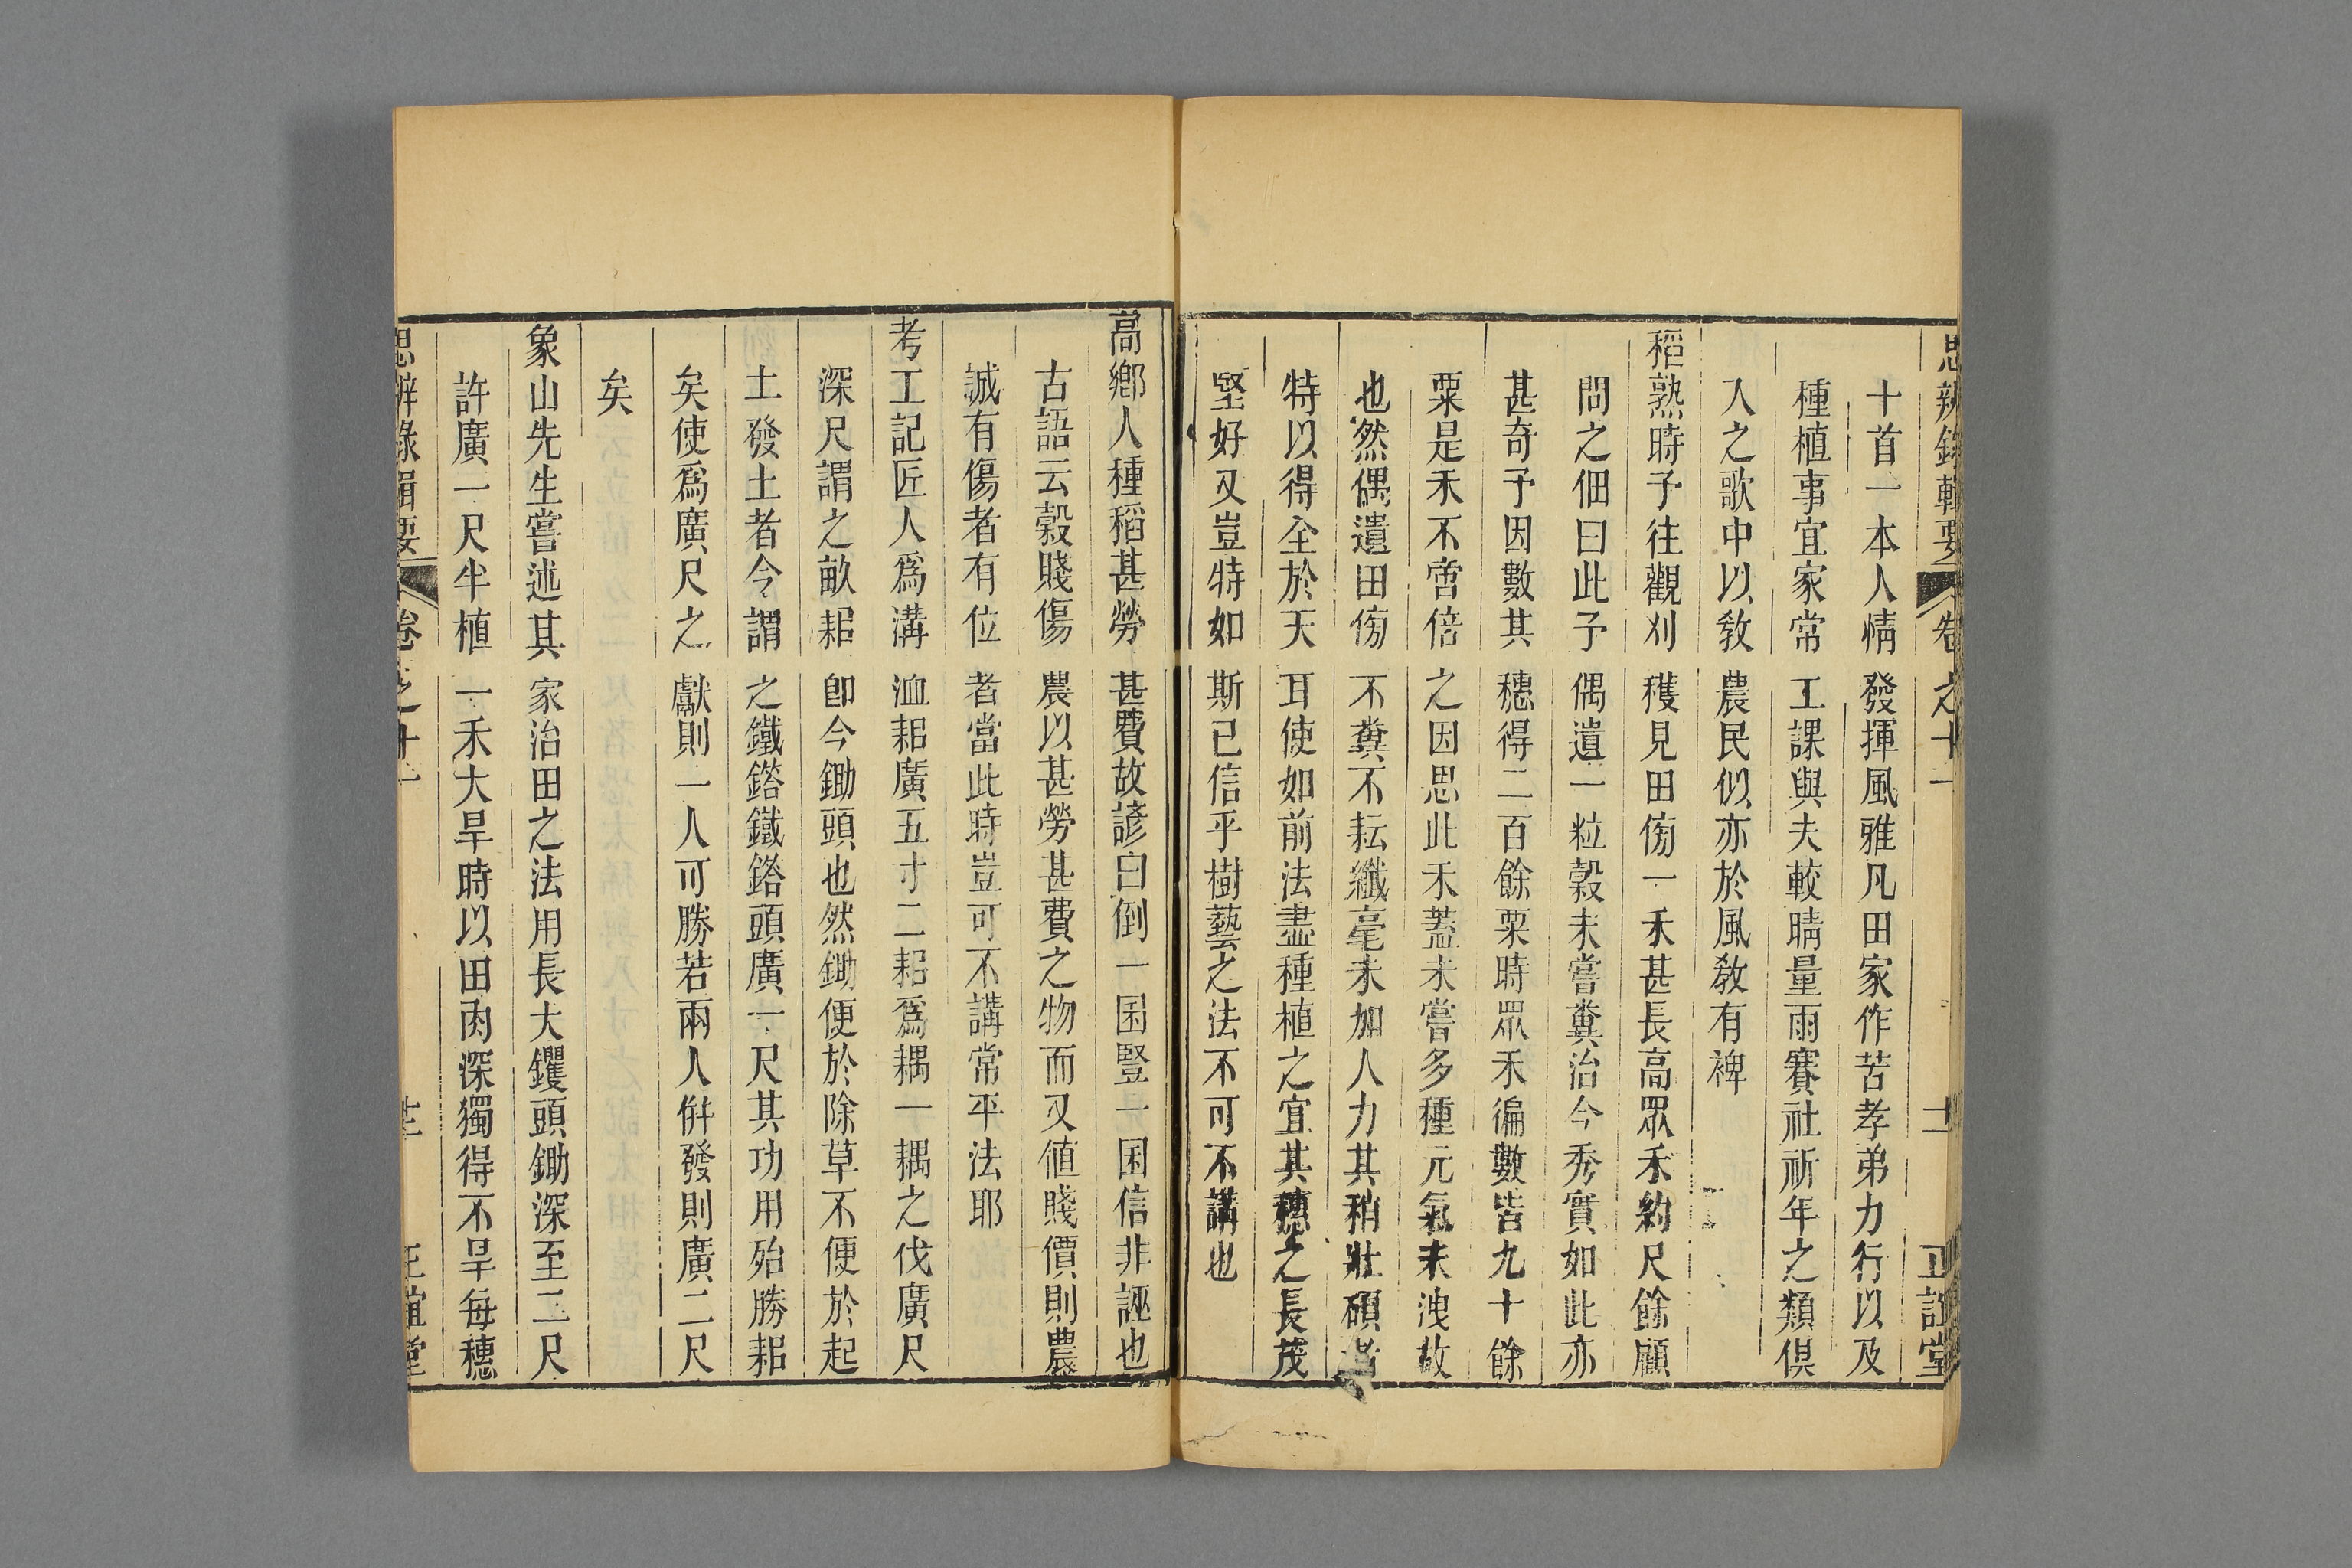 思辨錄輯要 卷之十一 十一 正誼堂
十首一本人情發揮風雅凡田家作苦孝弟力行以及
種植事宜家常工課與夫較晴量雨賽社祈年之類俱
入之歌中以敎農民似亦於風敎有裨
稻熟時予往觀刈穫見田傍一禾甚長高眾禾約尺餘顧
問之佃曰此予偶遺一粒穀未嘗糞治今秀實如此亦
甚奇予因數其穗得二百餘粟時眾禾徧數皆九十餘
粟是禾不啻倍之因思此禾蓋未嘗多種元氣未洩故
也然偶遺田傍不糞不耘纖毫未加人力其稍壯碩者
特以得全於天耳使如前法盡種植之宜其穗之長茂
堅好又豈特如斯已信乎樹藝之法不可不講也
高鄉人種稻甚勞甚費故諺曰倒一囷豎一囷信非誣也
古語云穀賤傷農以甚勞甚費之物而又値賤價則農
誠有傷者有位者當此時豈可不講常平法耶
考工記匠人爲溝洫耜廣五寸二耜爲耦一耦之伐廣尺
深尺謂之畝耜卽今鋤頭也然鋤便於除草不便於起
土發土者今謂之鐵鎝鐵鎝頭廣一尺其功用殆勝耜
矣使爲廣尺之𤱶則一人可勝若兩人併發則廣二尺
矣
象山先生嘗述其家治田之法用長大钁頭鋤深至二尺
許廣一尺半植一禾大旱時以田肉深獨得不旱每穗
思辨錄輯要 卷之十一 十二 正誼堂